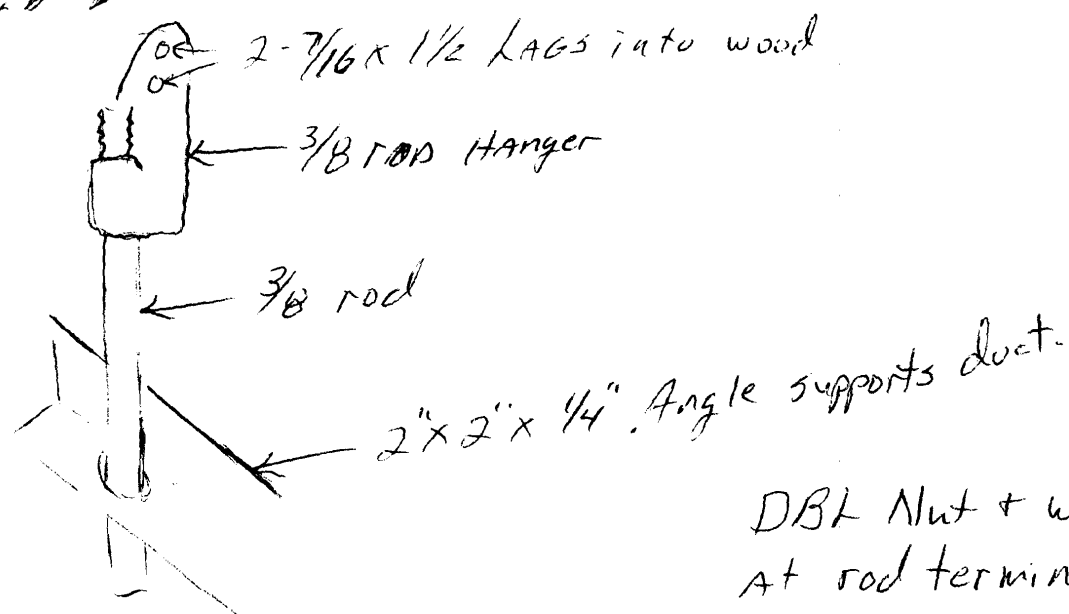 2-7/16 x 1 1/2 LAGS into wood
3/8 rOD HAnger
3/8 rod
2" x 2" x 1/4" Angle supports duct.
DBL Nut +
At rod